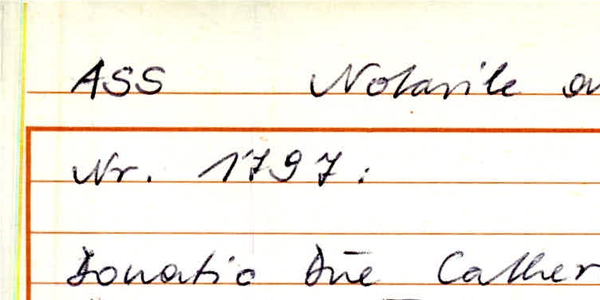 ASS Notarile
Nr. 1797:
Donatio Dñe Cather